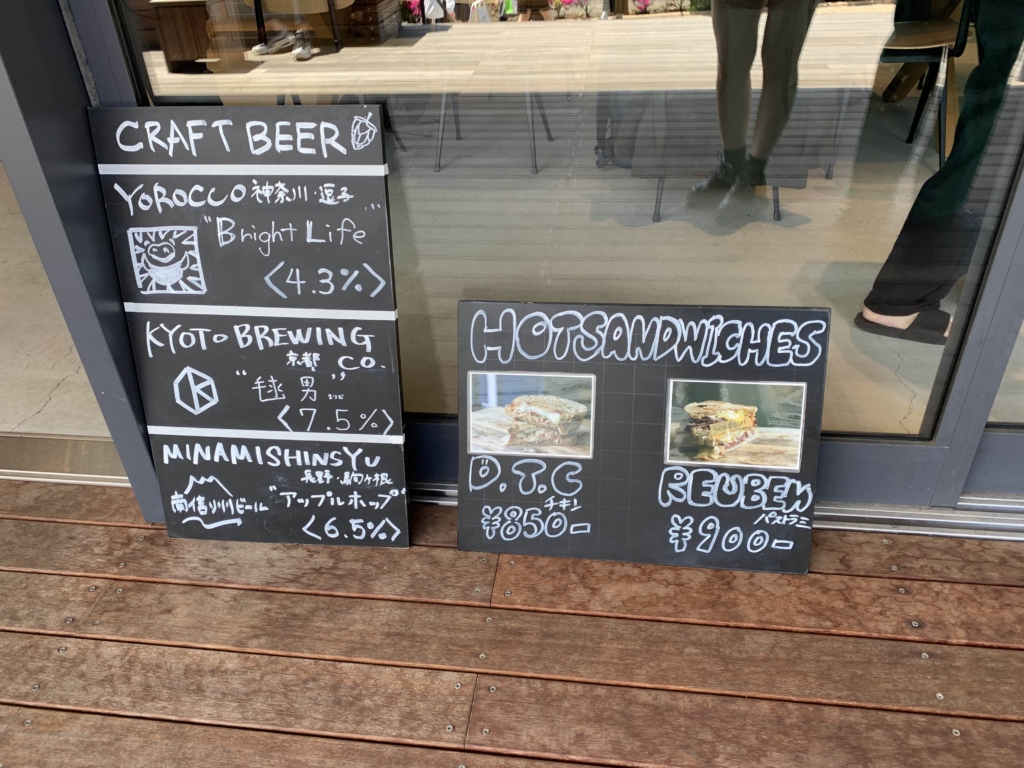 CRAFT BEER
YOROCCO 神奈川・逗子
"Bright Life"
〈4.3%〉
KYOTO BREWING
京都 CO.
"毬男"
まりお
〈7.5%〉
MINAMISHINSYU
長野・駒ヶ根
南信州ビール "アップルホップ"
〈6.5%〉
HOTSANDWICHES
D.T.C
チキン
¥850-
REUBEN
パストラミ
¥900-